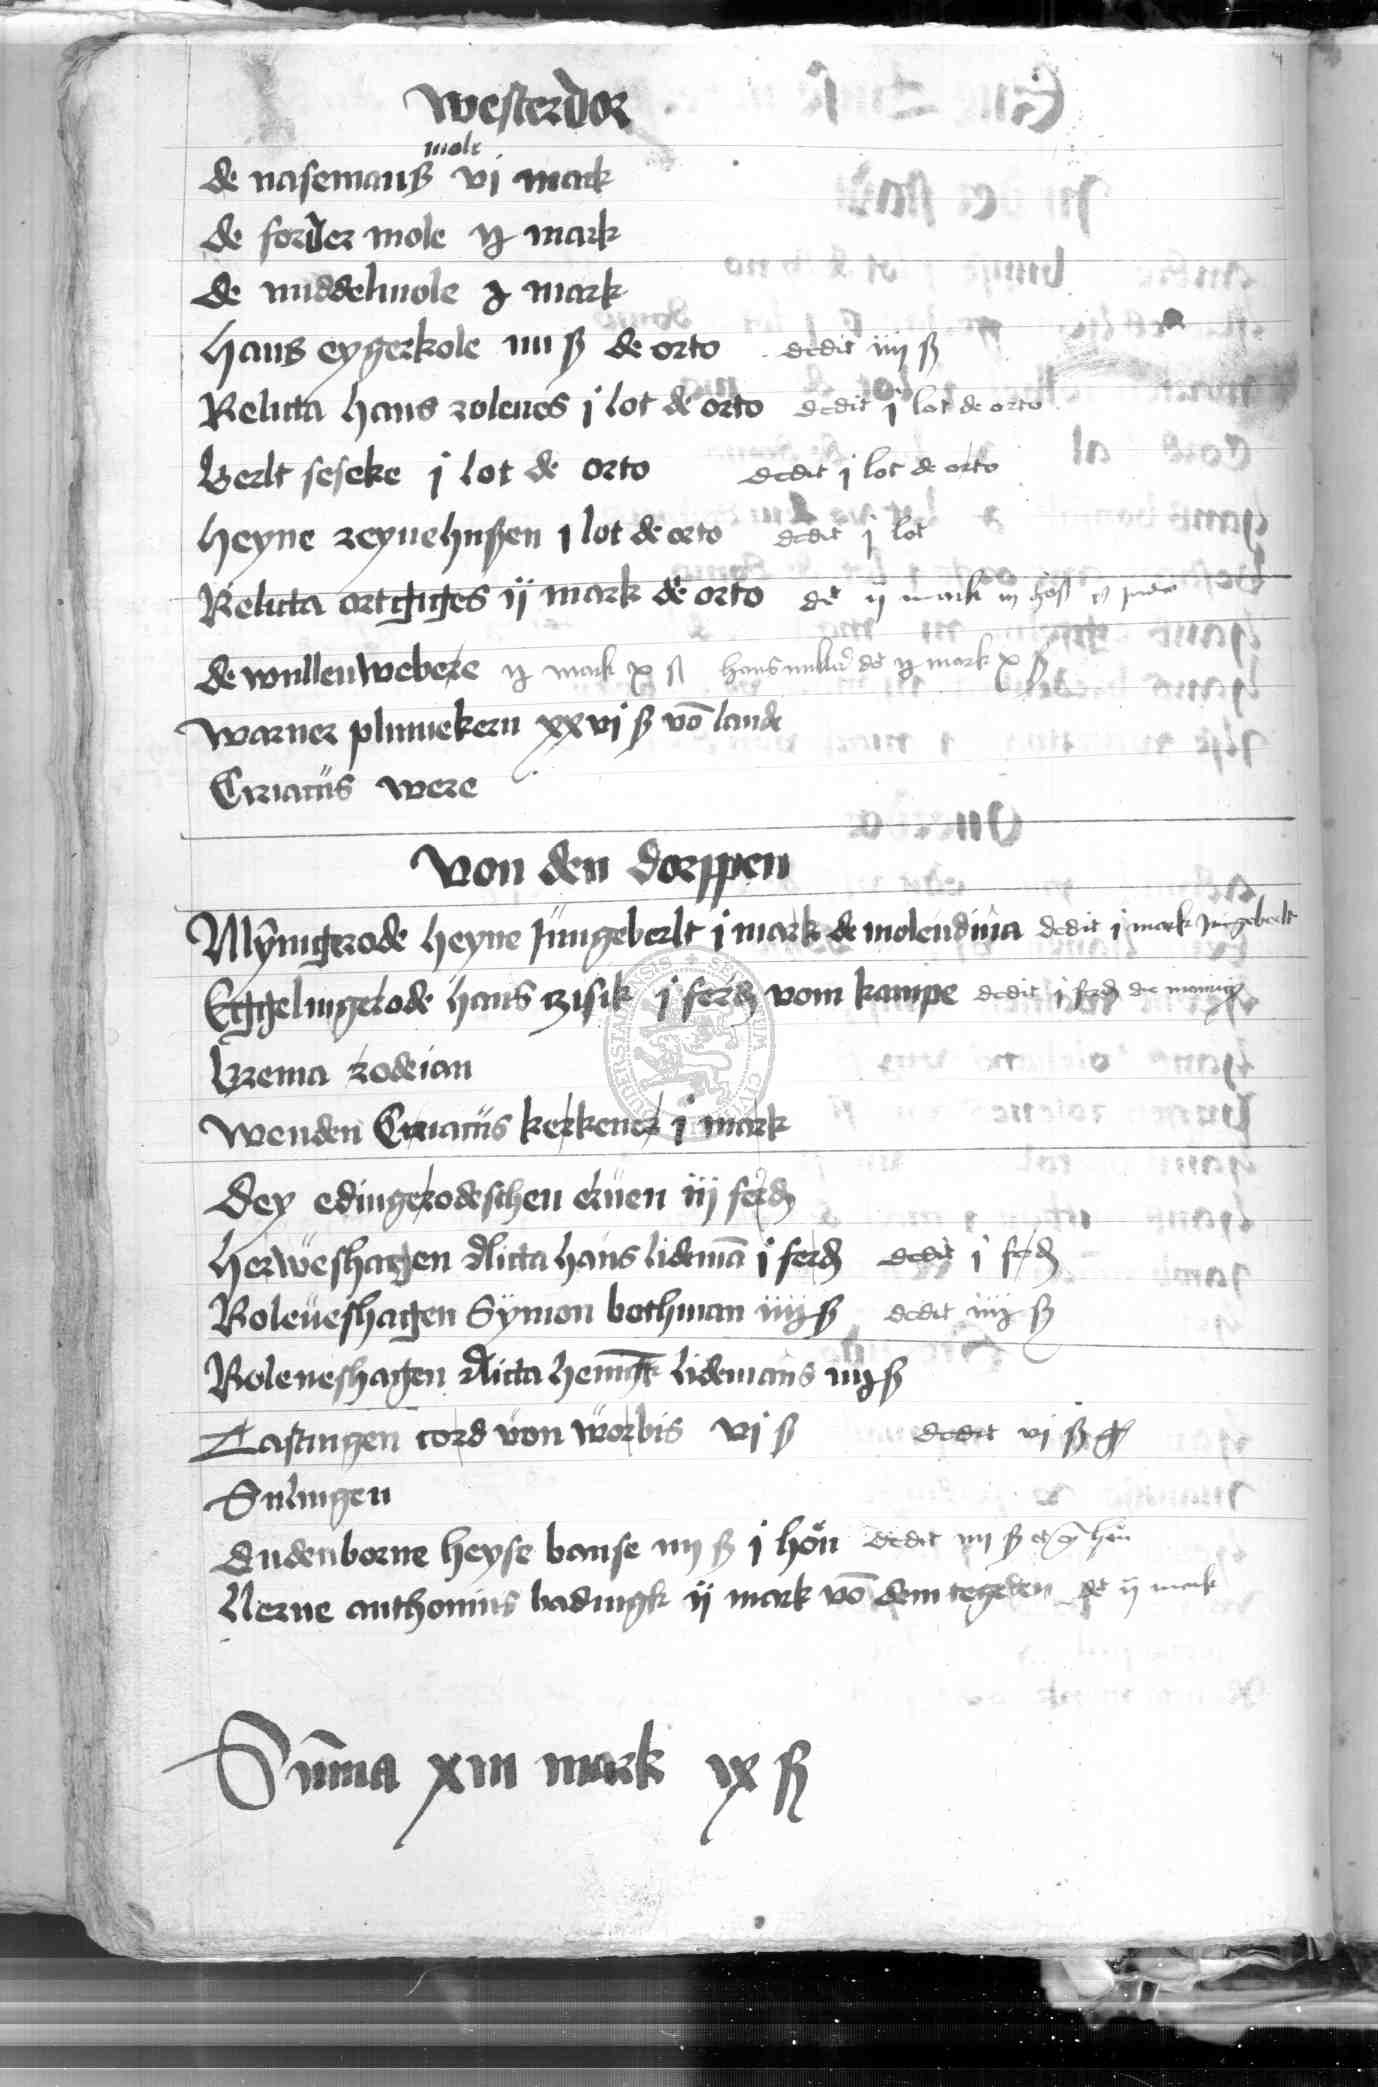 Westerdor
mole
de nasemans vj mark
de forder mole ij mark
de middelmole j mark
Hans eygerkole iiii ß de orto dedit iiij ß
Relicta hans roleves j lot de orto dedit j lot de orto
Berlt seseke j lot de orto dedit j lot de orto
Heyne reynehußen j lot de orto dedit j lot
Relicta ortgiges ij mark de orto dt ij mark
de wullenwebere ij mark x ß hans muller dt ij mark x ß
Warner plumekern xxvj ß vo lande
Ciriacus were
Von den dorppen
Myngerode heyne Jungeberlt j mark de molendina dedit j mark Jungeberlt
Eggelingerode hans zisik j ferd vom kampe dedit j ferd
Brema rodeian
Wenden Ciriacus kerkener j mark
Dey edingerodeschen erven iij ferd
Herweshagen Alicta hans lidema j ferd dedit j ferd
Roleveshagen Symon bothman iiij ß dedit iiij ß
Roleveshagen Alicta hennigk lidemans iiij ß
Tastungen cord von worbis vj ß dedit vj ß
Sulingen
Dudenborne heyse banse iiij ß j hon dedit iiij ß
Nerne anthonius badingk ij mark vo dem tegeden dt ij mark
Suma xiii mark ix ß